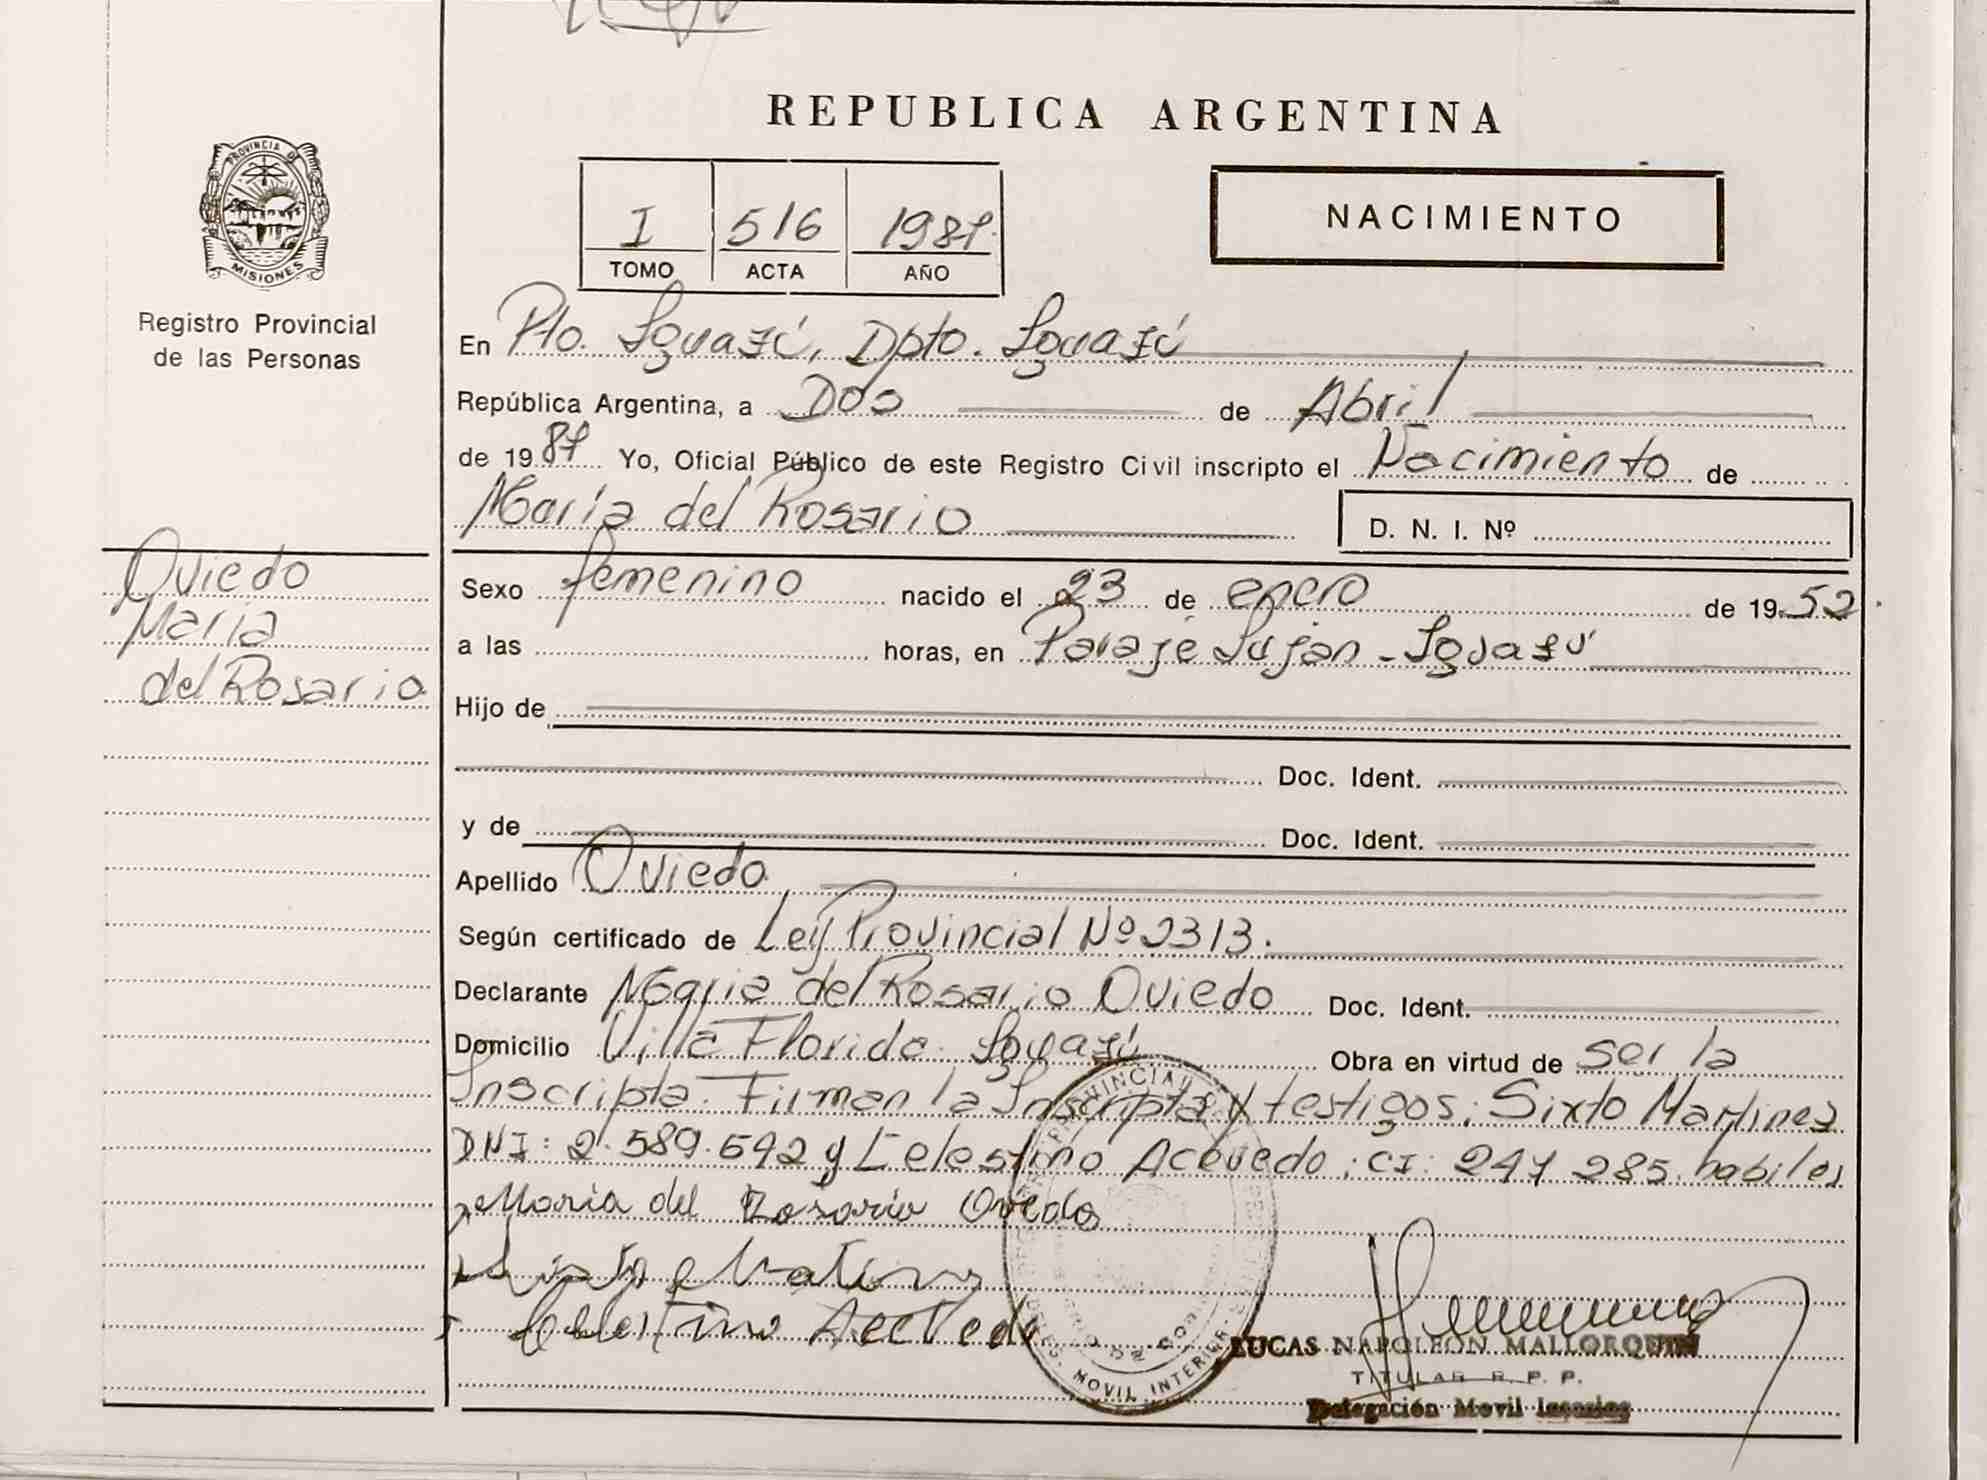 REPUBLICA ARGENTINA
PROVINCIA DE
MISIONES
Registro Provincial
de las Personas
I 516 1987
TOMO ACTA AÑO
NACIMIENTO
En Pto. Iguazú, Dpto. Iguazú
República Argentina, a Dos de Abril
de 1987 Yo, Oficial Público de este Registro Civil inscripto el Nacimiento de
María del Rosario D. N. I. Nº
Oviedo
María
del Rosario
Sexo femenino nacido el 23 de enero de 1952
a las horas, en Paraje Lujan - Iguazú
Hijo de
Doc. Ident.
y de Doc. Ident.
Apellido Oviedo
Según certificado de Ley Provincial Nº 2313.
Declarante María del Rosario Oviedo Doc. Ident.
Domicilio Villa Florida Iguazú Obra en virtud de ser la
Inscripta. Firman la Inscripta y testigos: Sixto Martinez
DNI: 2.589.592 y Celestino Acevedo; CI: 247 285. habiles
Maria del Rosario Oviedo
Celestino Acevedo
MOVIL INTERIOR
LUCAS NAPOLEON MALLORQUIN
TITULAR R. P. P.
Delegación Movil